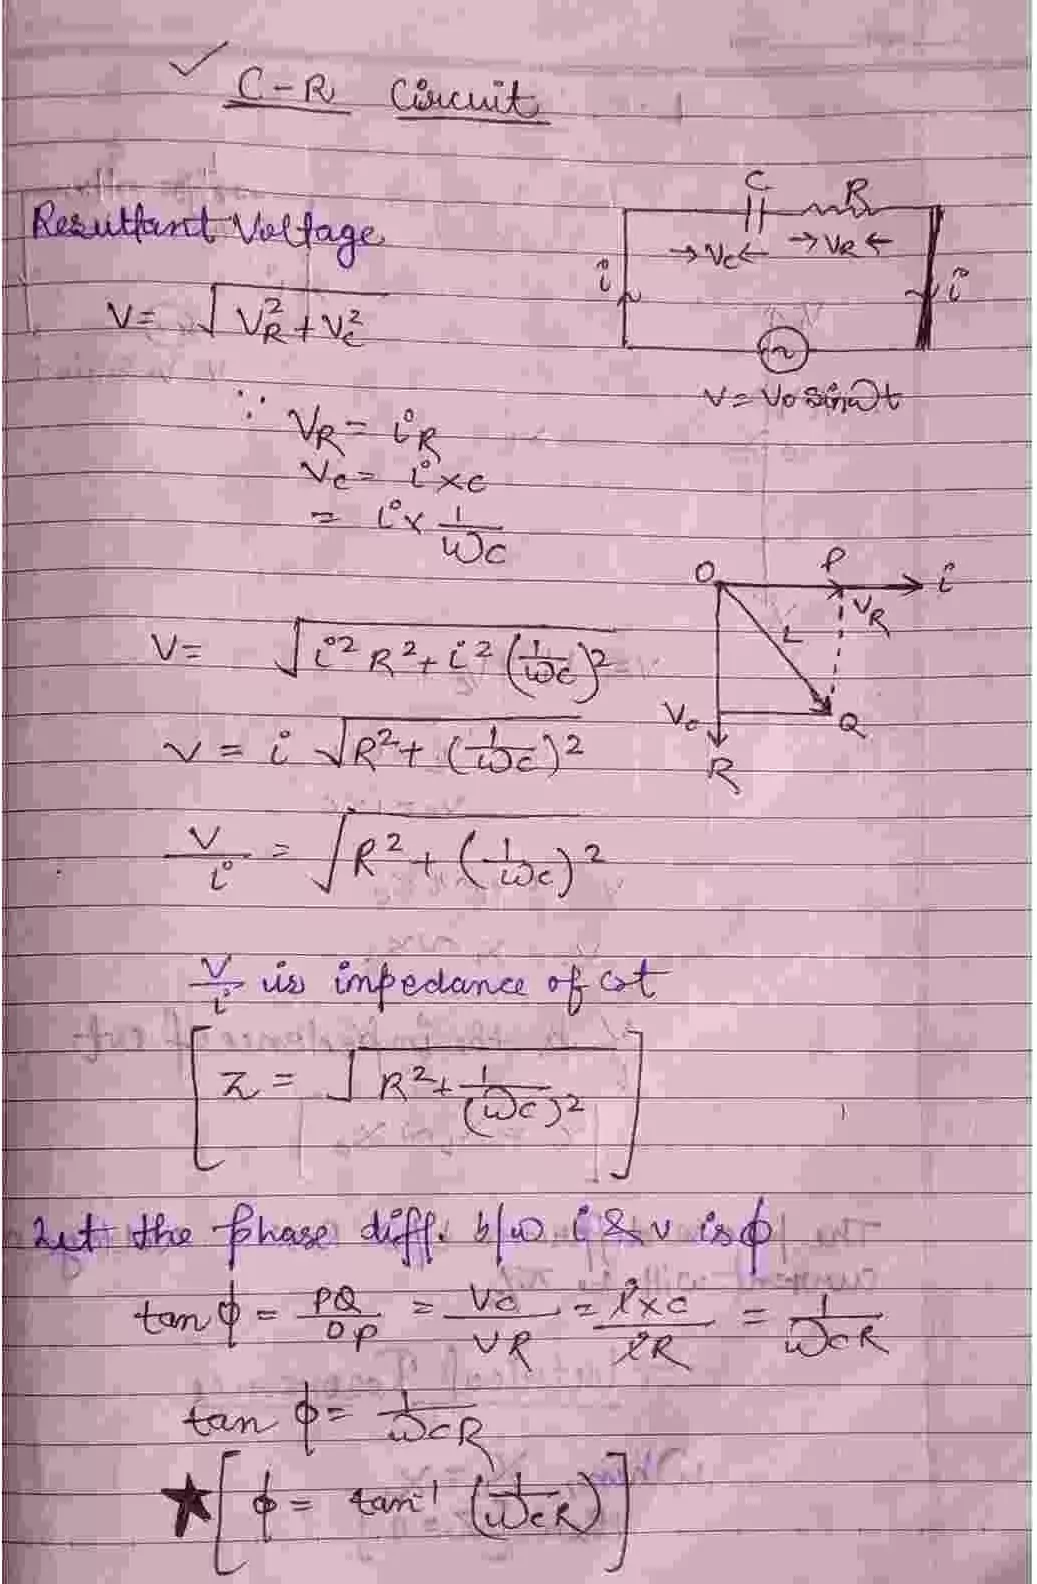 ✓ C-R Circuit
C
R
→ Vc ← → VR ←
i
i
V = Vo sinωt
Resultant Voltage
V = √(VR² + Vc²)
∵ VR = iR
Vc = i xc
= i x 1/ωc
O P i
VR
Vc
Q
R
V = √(i² R² + i² (1/ωc)²)
V = i √(R² + (1/ωc)²)
V/i = √(R² + (1/ωc)²)
V/i is impedance of cct
[Z = √(R² + 1/(ωc)²)]
Let the phase diff. b/w i & v is ϕ
tan ϕ = PQ/OP = Vc/VR = ixc/iR = 1/ωcR
tan ϕ = 1/ωcR
★ [ϕ = tan⁻¹ (1/ωcR)]